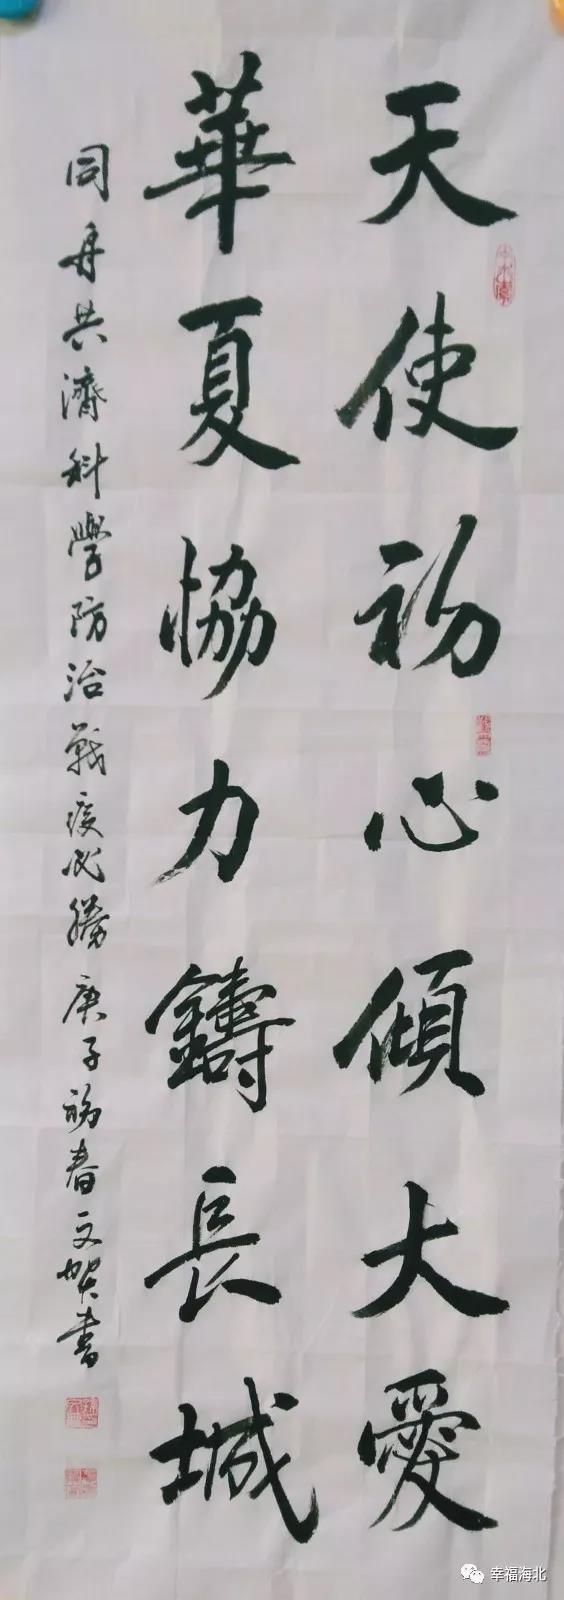 天使初心傾大愛
華夏協力鑄長城
同舟共濟科學防治戰疫必勝庚子初春文賀書
幸福海北